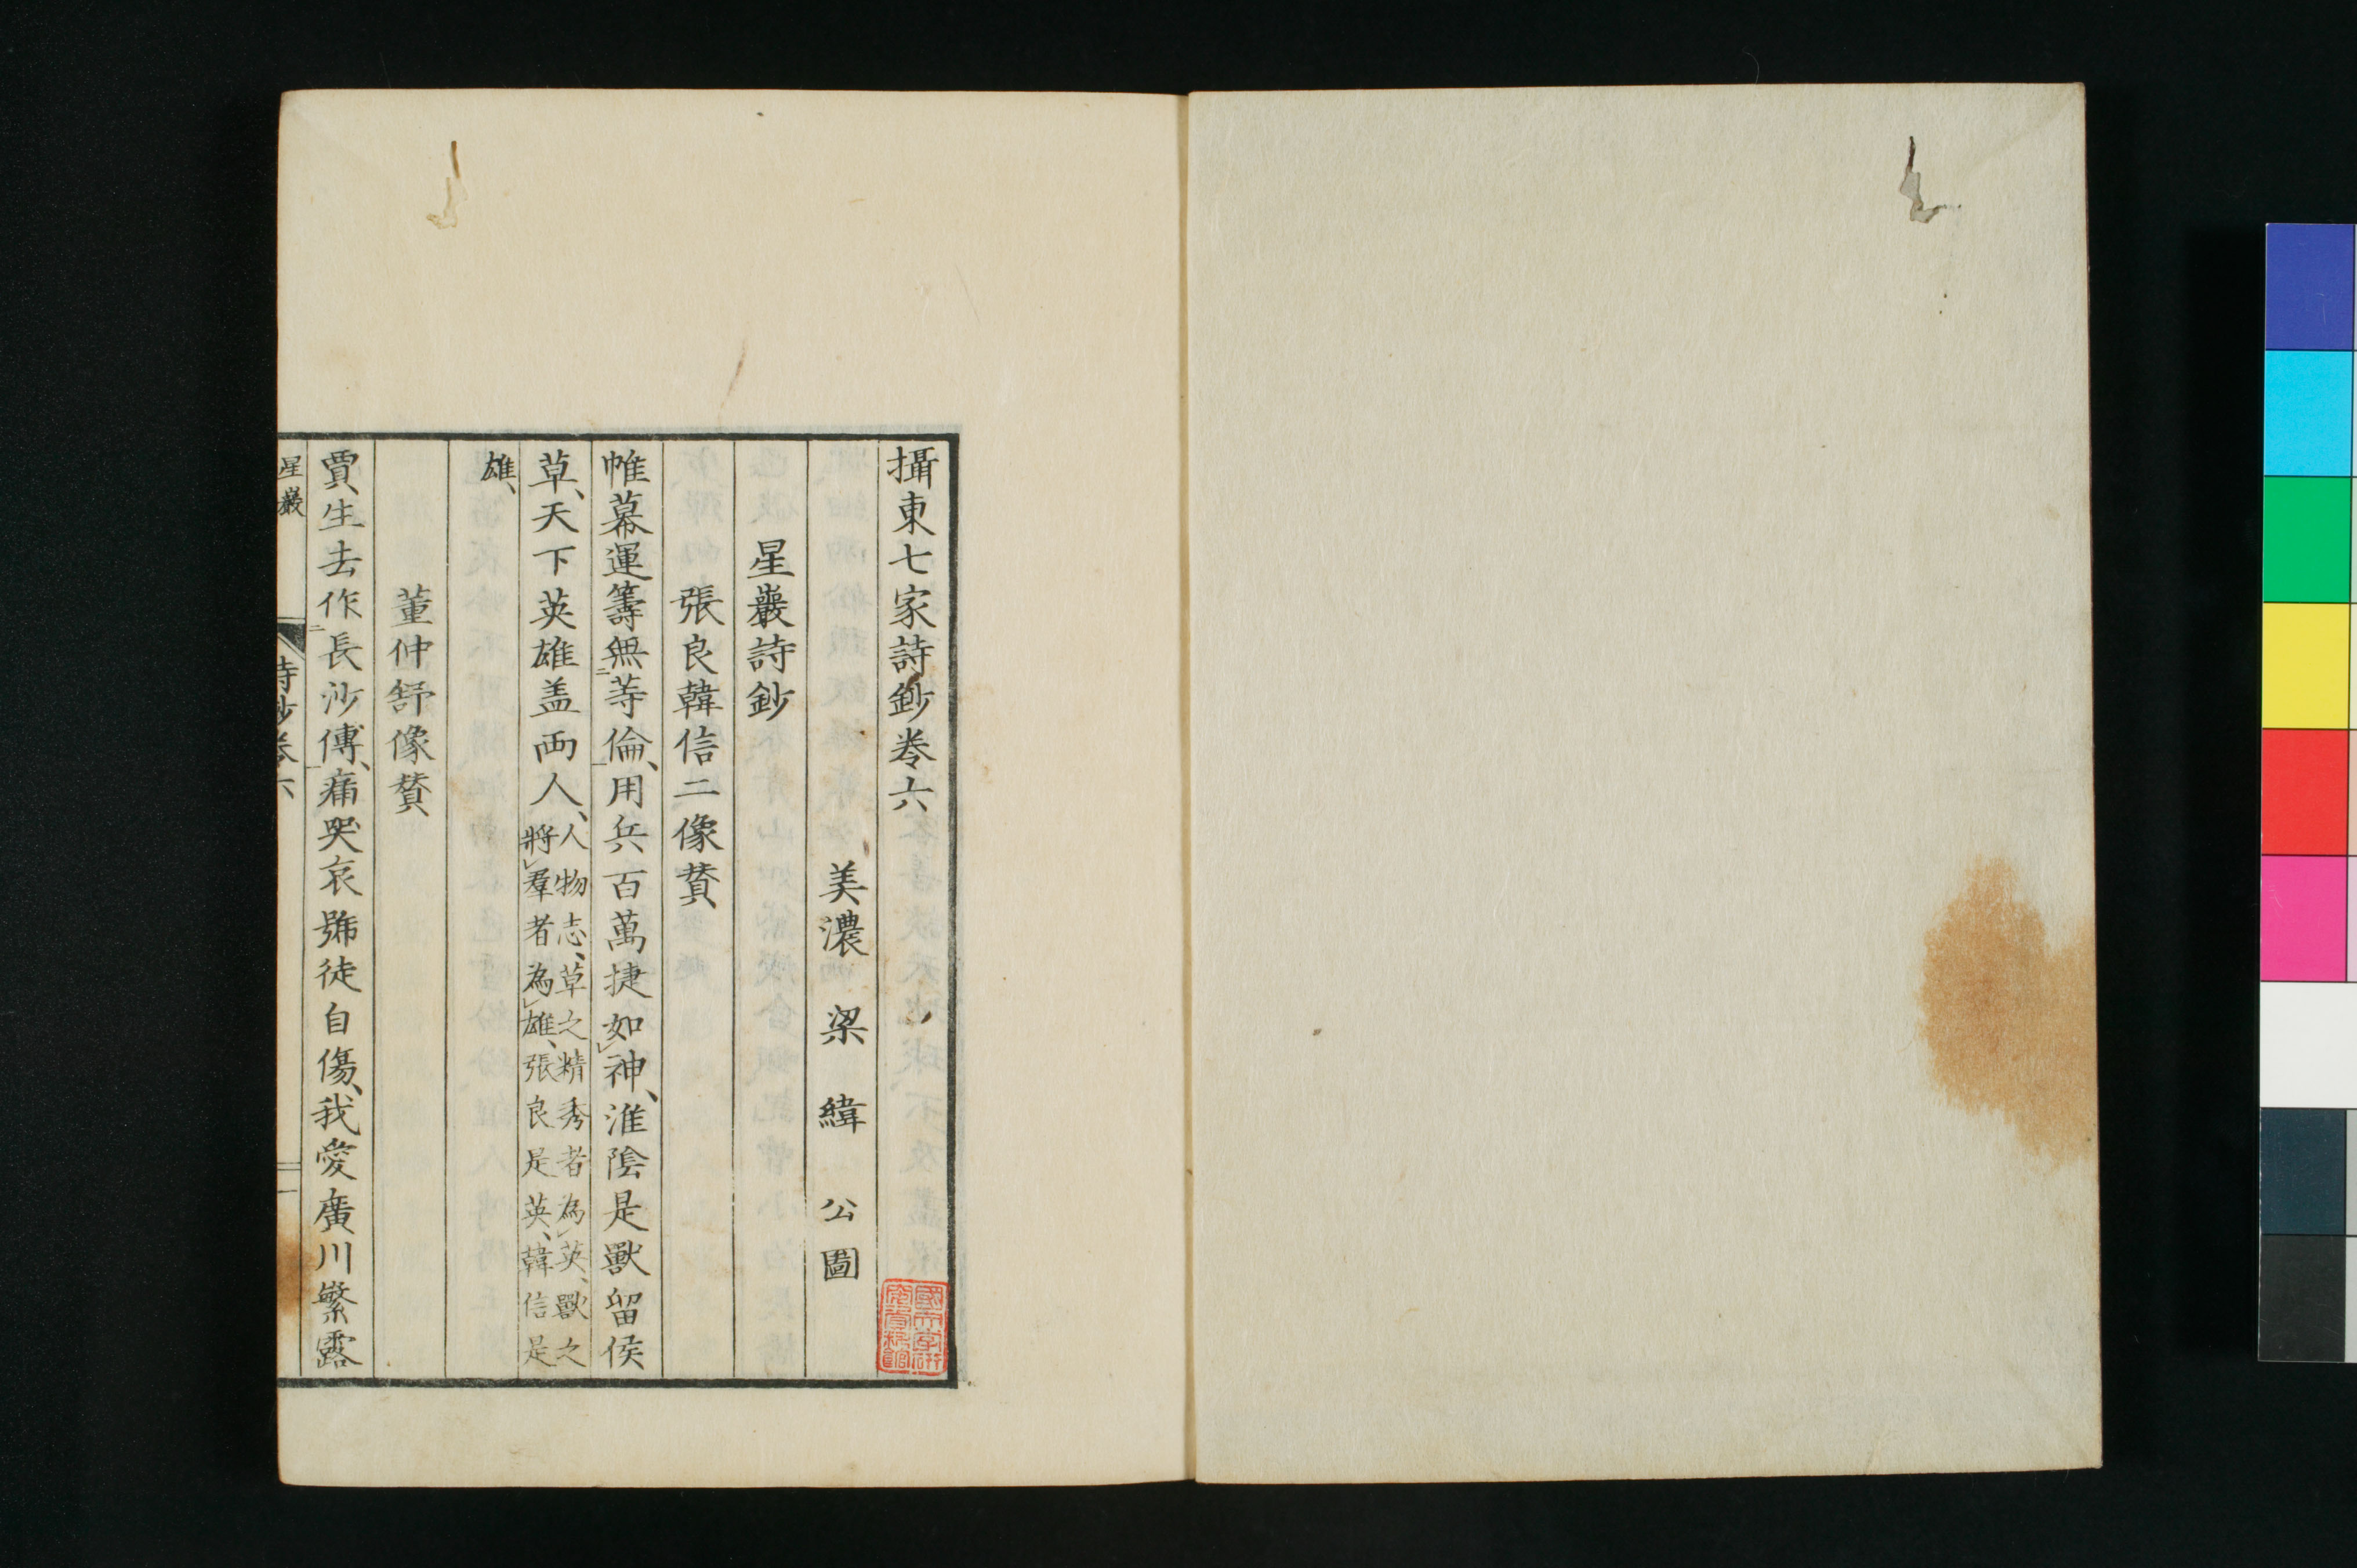 攝東七家詩鈔卷六
美濃 梁 緯 公圖
星巖詩鈔
張良韓信二像贊、
帷幕運籌無㆓等倫㆒、用兵百萬捷如㆑神、淮陰是獸留侯
草、天下英雄盖兩人、
人物志、草之精秀者為㆑英、獸之
將㆑羣者為㆑雄、張良是英、韓信是
雄、
董仲舒像贊
賈生去作㆓長沙傅㆒、痛哭哀號徒自傷、我愛廣川繁露
星巖 詩鈔卷六 一